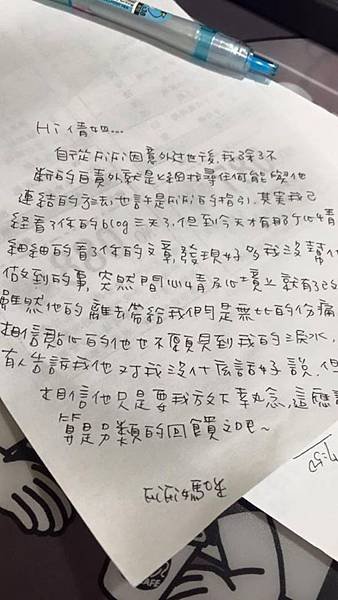 Hi 倩如...
自從FiFi因意外过世後,我除了不
斷的自責外就是仔細找尋任何能與他
連結的方法,也許是FiFi的指引,其實我已
經看了你的blog三天了,但到今天才有那个心情
細細的看了你的文章,發現好多我沒幫他
做到的事,突然間心情
雖然他的離去帶給我們是無比的傷痛
相信貼心的他也不願見到我的淚水,
有人告訴我他对我沒什麼話好說,但
相信他只是要我放下執念,這應該
算是另類的回饋吧~
FiFi媽咪
CAFE